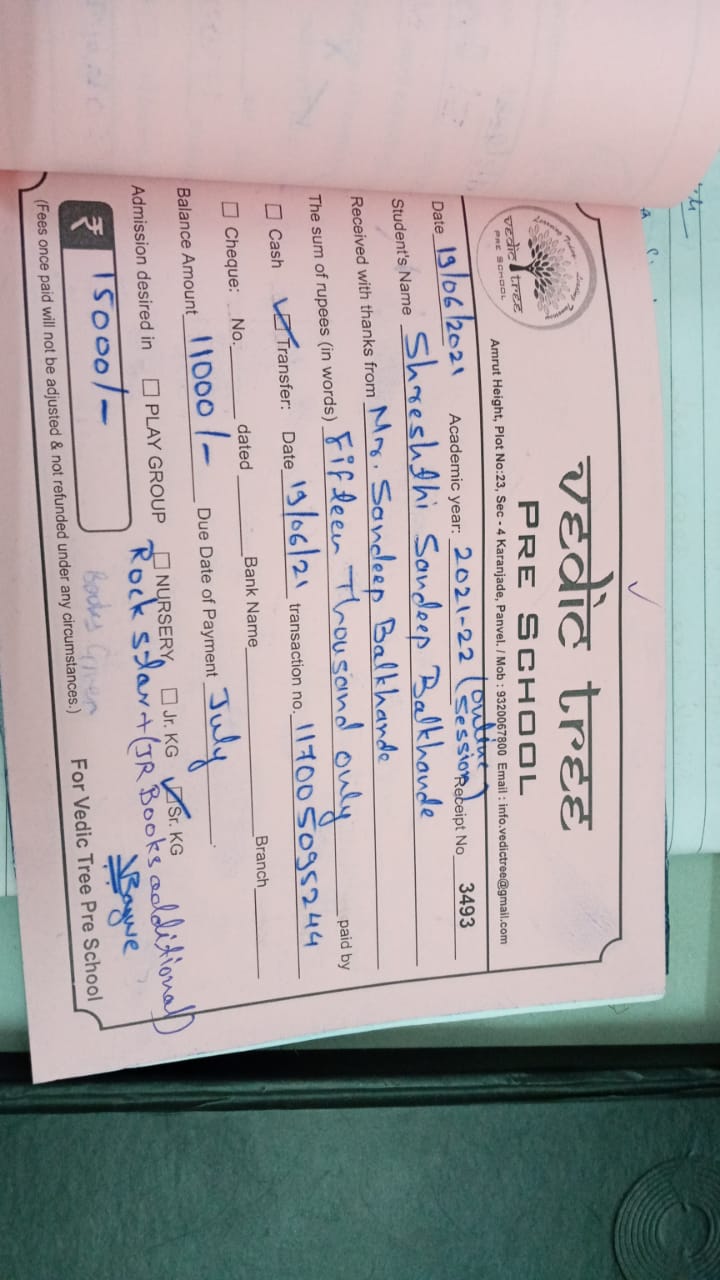 vedic tree
PRE SCHOOL
vedic tree
PRE SCHOOL
Amrut Height, Plot No:23, Sec - 4 Karanjade, Panvel. / Mob : 9320067800 Email : info.vedictree@gmail.com
Date 19/06/2021 Academic year: 2021-22 (online session) Receipt No 3493
Student's Name Shreshthi Sandeep Balkhande
Received with thanks from Mr. Sandeep Balkhande
The sum of rupees (in words) Fifteen Thousand only paid by
Cash Transfer: Date 19/06/21 transaction no. 117005095244
Cheque: No. dated Bank Name Branch
Balance Amount 11000/- Due Date of Payment July.
Admission desired in PLAY GROUP NURSERY Jr. KG Sr. KG
Rock star + (JR Books additional)
₹ 15000/-
Books Given
For Vedic Tree Pre School
(Fees once paid will not be adjusted & not refunded under any circumstances.)